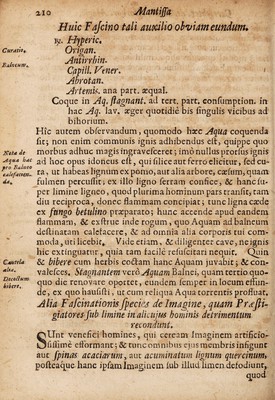 210 Mantissa
Huic Fascino tali auxilio obviam eundum.
Curatio. ℞. Hyperic.
Origan.
Balneum. Antirrhin.
Capill. Vener.
Abrotan.
Artemis. ana part. æqual.
Coque in Aq. stagnant. ad tert. part. consumption. in
hac Aq. lav. æger quotidiè bis singulis vicibus ad
bihorium.
Hîc autem observandum, quomodo hæc Aqua coquenda
sit; non enim communis ignis adhibendus est, quippe quo
Nota de morbus adhuc magis ingravesceret; imò nullus prorsus ignis
Aqua hac ad hoc opus idoneus est, qui silice aut ferro elicitur, sed cu-
pro Balneo ta, ut habeas lignum ex pomo, aut alia arbore, cæsum, quam
calefacien- fulmen percussit; ex illo ligno serram confice, & hanc su-
da. per limine ligneo, quod plurima hominum pars transit, tam
diu reciproca, donec flammam concipiat; tunc ligna cæde
ex fungo betulino præparato; hunc accende apud eandem
flammam, & exstrue inde rogum, quo Aquam ad balneum
destinatam calefacere, & ad omnia alia corporis tui com-
moda, uti licebit. Vide etiam, & diligenter cave, ne ignis
Cautela hic extinguatur, quia tam facilè resuscitari nequit. Quin
alia. & bibere cum herbis coctam hanc Aquam juvabit; & con-
valesces. Stagnantem verò Aquam Balnei, quam tertio quo-
Decoctum quo die renovare oportet, eundem semper in locum effun-
bibere. de, ex quo hausisti, ut cum reliqua Aqua torrentis profluat.
Alia Fascinationis species de Imagine, quam Præsti-
giatores sub limine in alicujus hominis detrimentum
recondunt.
SUnt venefici homines, qui ceream Imaginem artificio-
sissimè efformant; & tunc omnibus ejus membris infigunt
aut spinas acaciarum, aut acuminatum lignum quercinum,
posteaque hanc ipsam Imaginem sub illud limen defodiunt,
quod